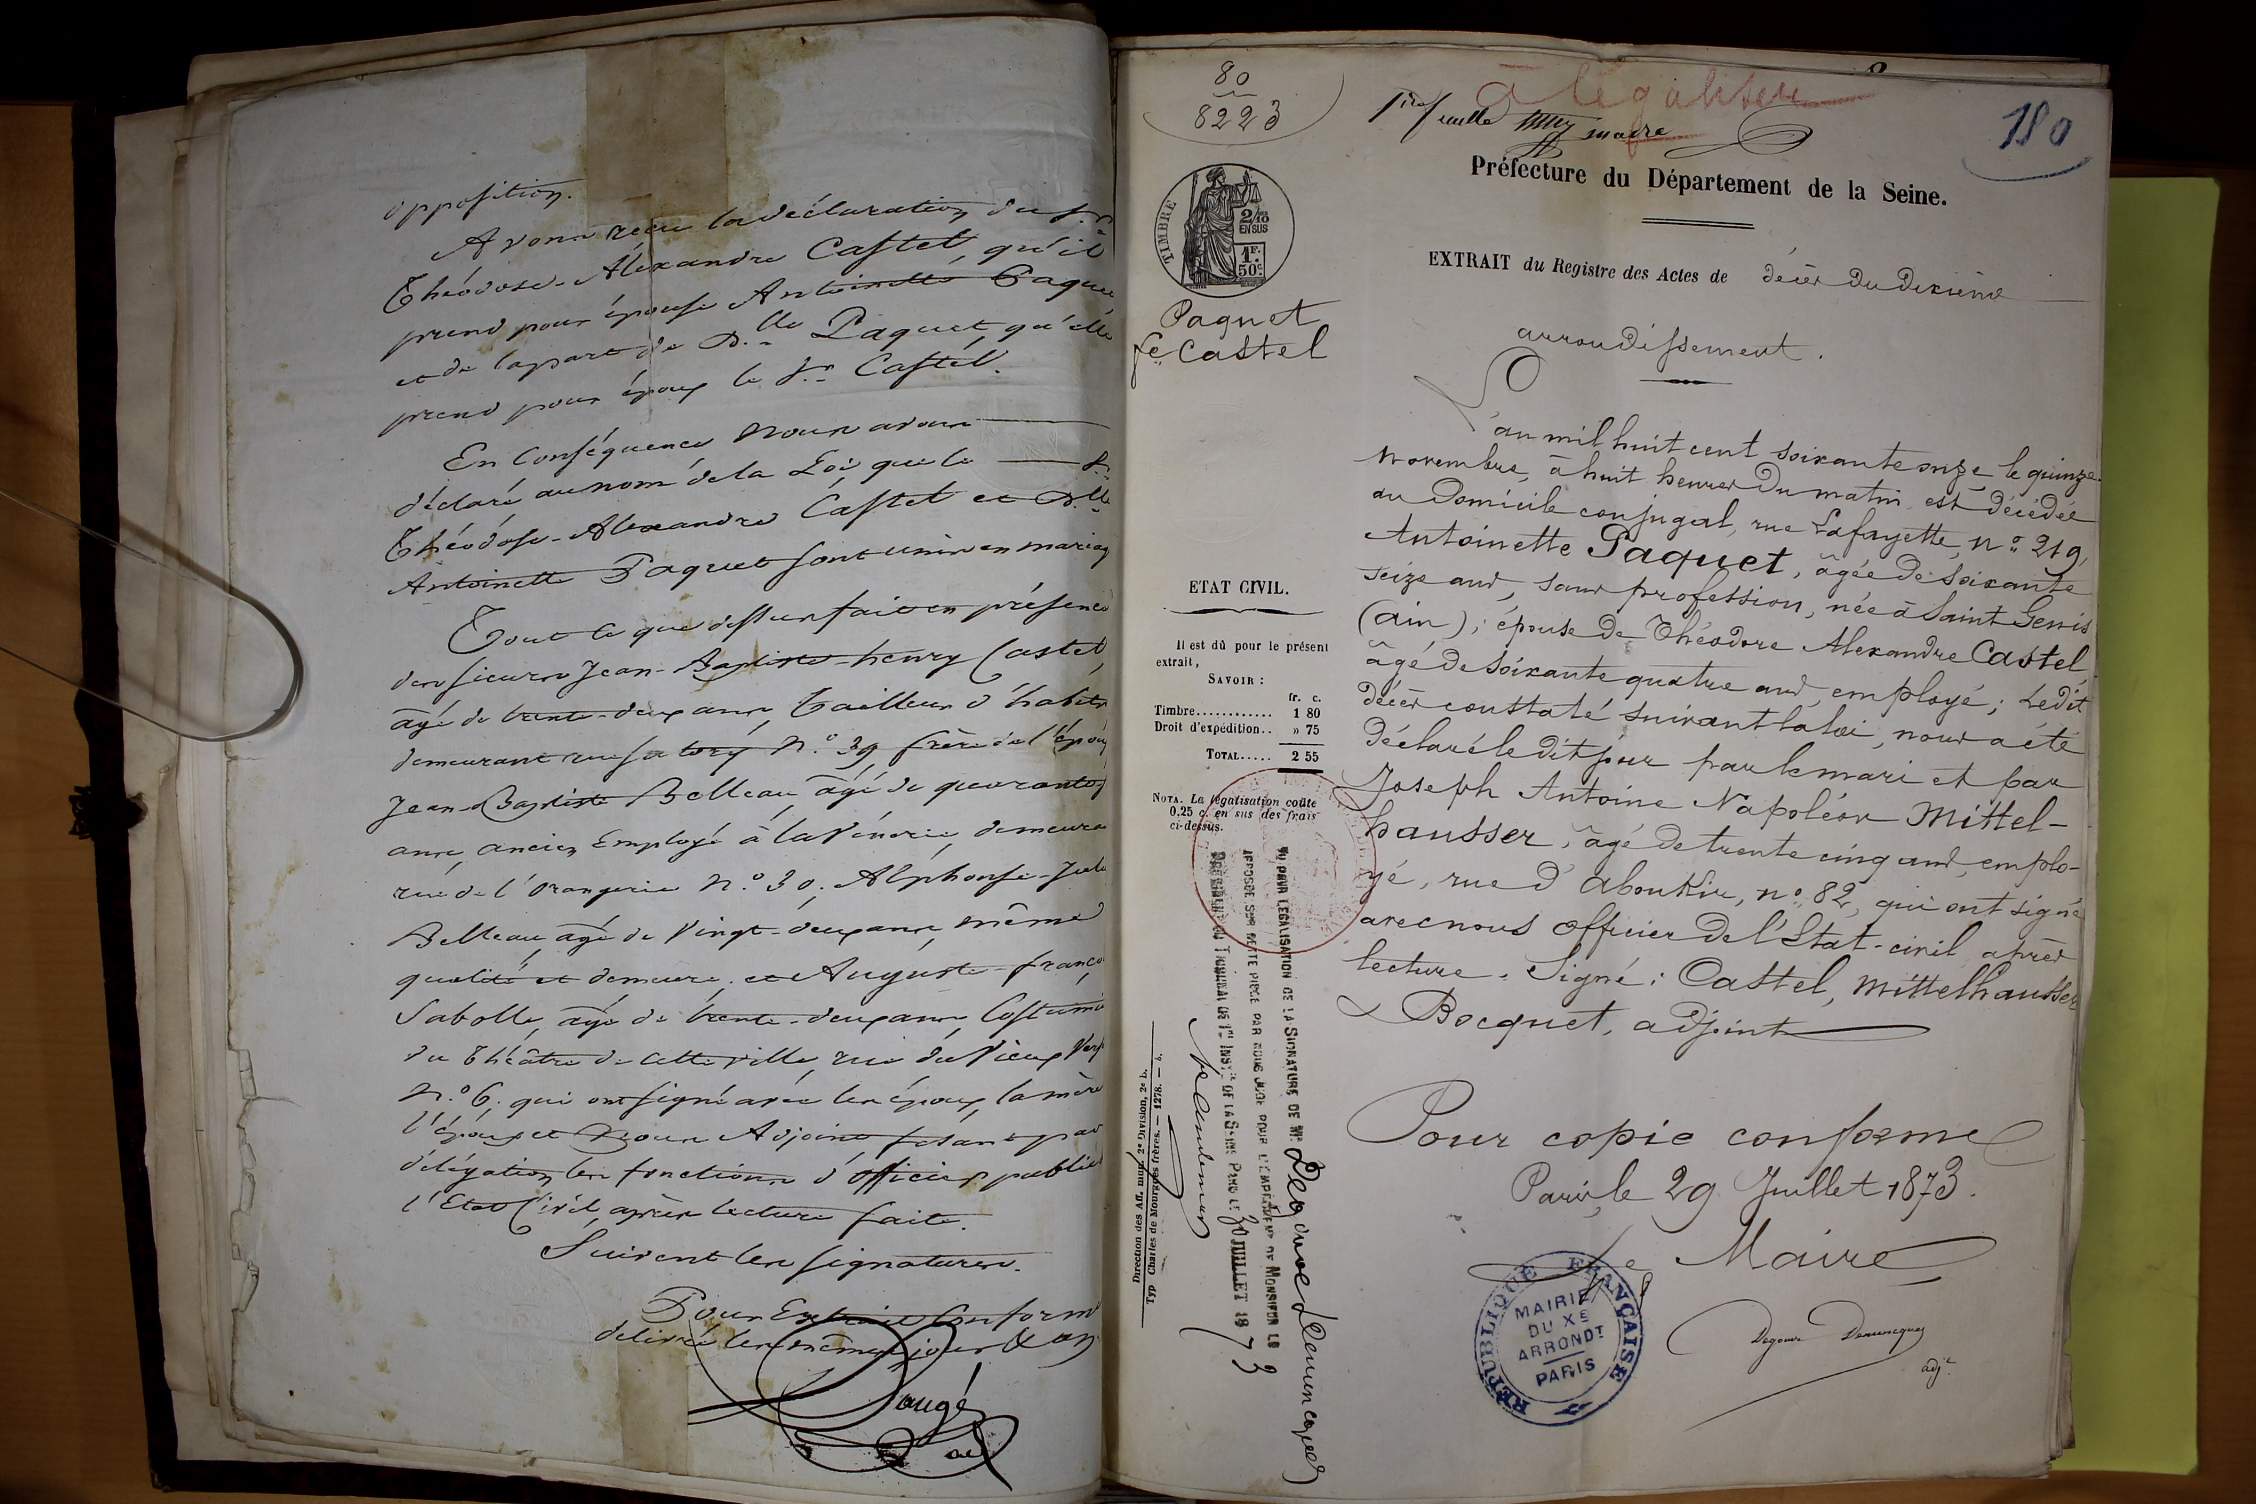 opposition.
Avons reçu la déclaration du Sr.
Théodose-Aléxandre Castel, qu'il
prend pour épouse Antoinette Paquet
et de la part de D.lle Paquet, qu'elle
prend pour époux le Sr. Castel.
En Conséquence Nous avons
déclaré au nom de la Loi, que le Sr.
Théodose-Alexandre Castel et D.lle
Antoinette Paquet sont unis en mariag
Tout ce que dessus fait en présence
des sieurs Jean-Baptiste-henry Castel,
âgé de trente-deux ans, tailleur d'habits
demeurant rue satory N.° 39, frère de l'époux
Jean-Baptiste Belleau, âgé de quarante
ans, ancien Employé à la Vénerie, demeura
rue de l'orangerie N.° 30. Alphonse-Jule
Belleau, âgé de Vingt-deux ans, même
qualité et demeure, et Auguste-franço
Sabolle, âgé de trente-deux ans, Costumie
du théâtre de cette ville, rue du Vieux Vers
N.° 6. qui ont signé avec les époux, la mère
l'époux et Nous Adjoint faisant par
délégation les fonctions d'officier public
l'Etat Civil, après lecture faite.
Suivent les signatures.
Pour Extrait Conforme
délivré les même jour & an
Paugé
80
8223
1re feuille
maire
à légaliser
180
Préfecture du Département de la Seine.
TIMBRE
2/10
EN SUS
1F.
50c
EXTRAIT du Registre des Actes de décès du dixième
arrondissement.
Paquet
fe Castel
L'an mil huit cent soixante onze, le quinze
novembre, à huit heures du matin, est décédée
au domicile conjugal, rue Lafayette, n.° 219,
Antoinette Paquet, âgée de soixante
seize ans, sans profession, née à Saint Genis
(ain); épouse de Théodore Alexandre Castel
âgé de soixante quatre ans, employé; Ledit
décès constaté suivant la loi, nous a été
déclaré ledit jour par le mari et par
Joseph Antoine Napoléon Mittel-
hausser, âgé de trente cinq ans, emplo-
yé, rue d'aboukir, n.° 82, qui ont signé
avec nous officier de l'Etat-civil après
lecture. Signé: Castel, Mittelhausser
& Bocquet, adjoint
Pour copie conforme
Paris, le 29 Juillet 1873.
Le Maire
adj.t
RÉPUBLIQUE FRANÇAISE
MAIRIE
DU XE
ARRONDT
PARIS
ETAT CIVIL.
Il est dû pour le présent
extrait,
SAVOIR :
fr. c.
Timbre............ 1 80
Droit d'expédition.. » 75
TOTAL..... 2 55
NOTA. La légalisation coûte
0,25 c. en sus des frais
ci-dessus.
VU POUR LÉGALISATION DE LA SIGNATURE DE Mr.
APPOSÉE SUR CETTE PIÈCE PAR NOUS JUGE POUR L'EMPÊCHEMt DE MONSIEUR LE
PRÉSIDENT DU TRIBUNAL DE 1re INSTce DE LA SEINE PARIS LE 30 JUILLET 1873
Direction des Aff. mun. 2e Division, 2e b.
Typ Charles de Mourgues frères. — 1278. — 4.